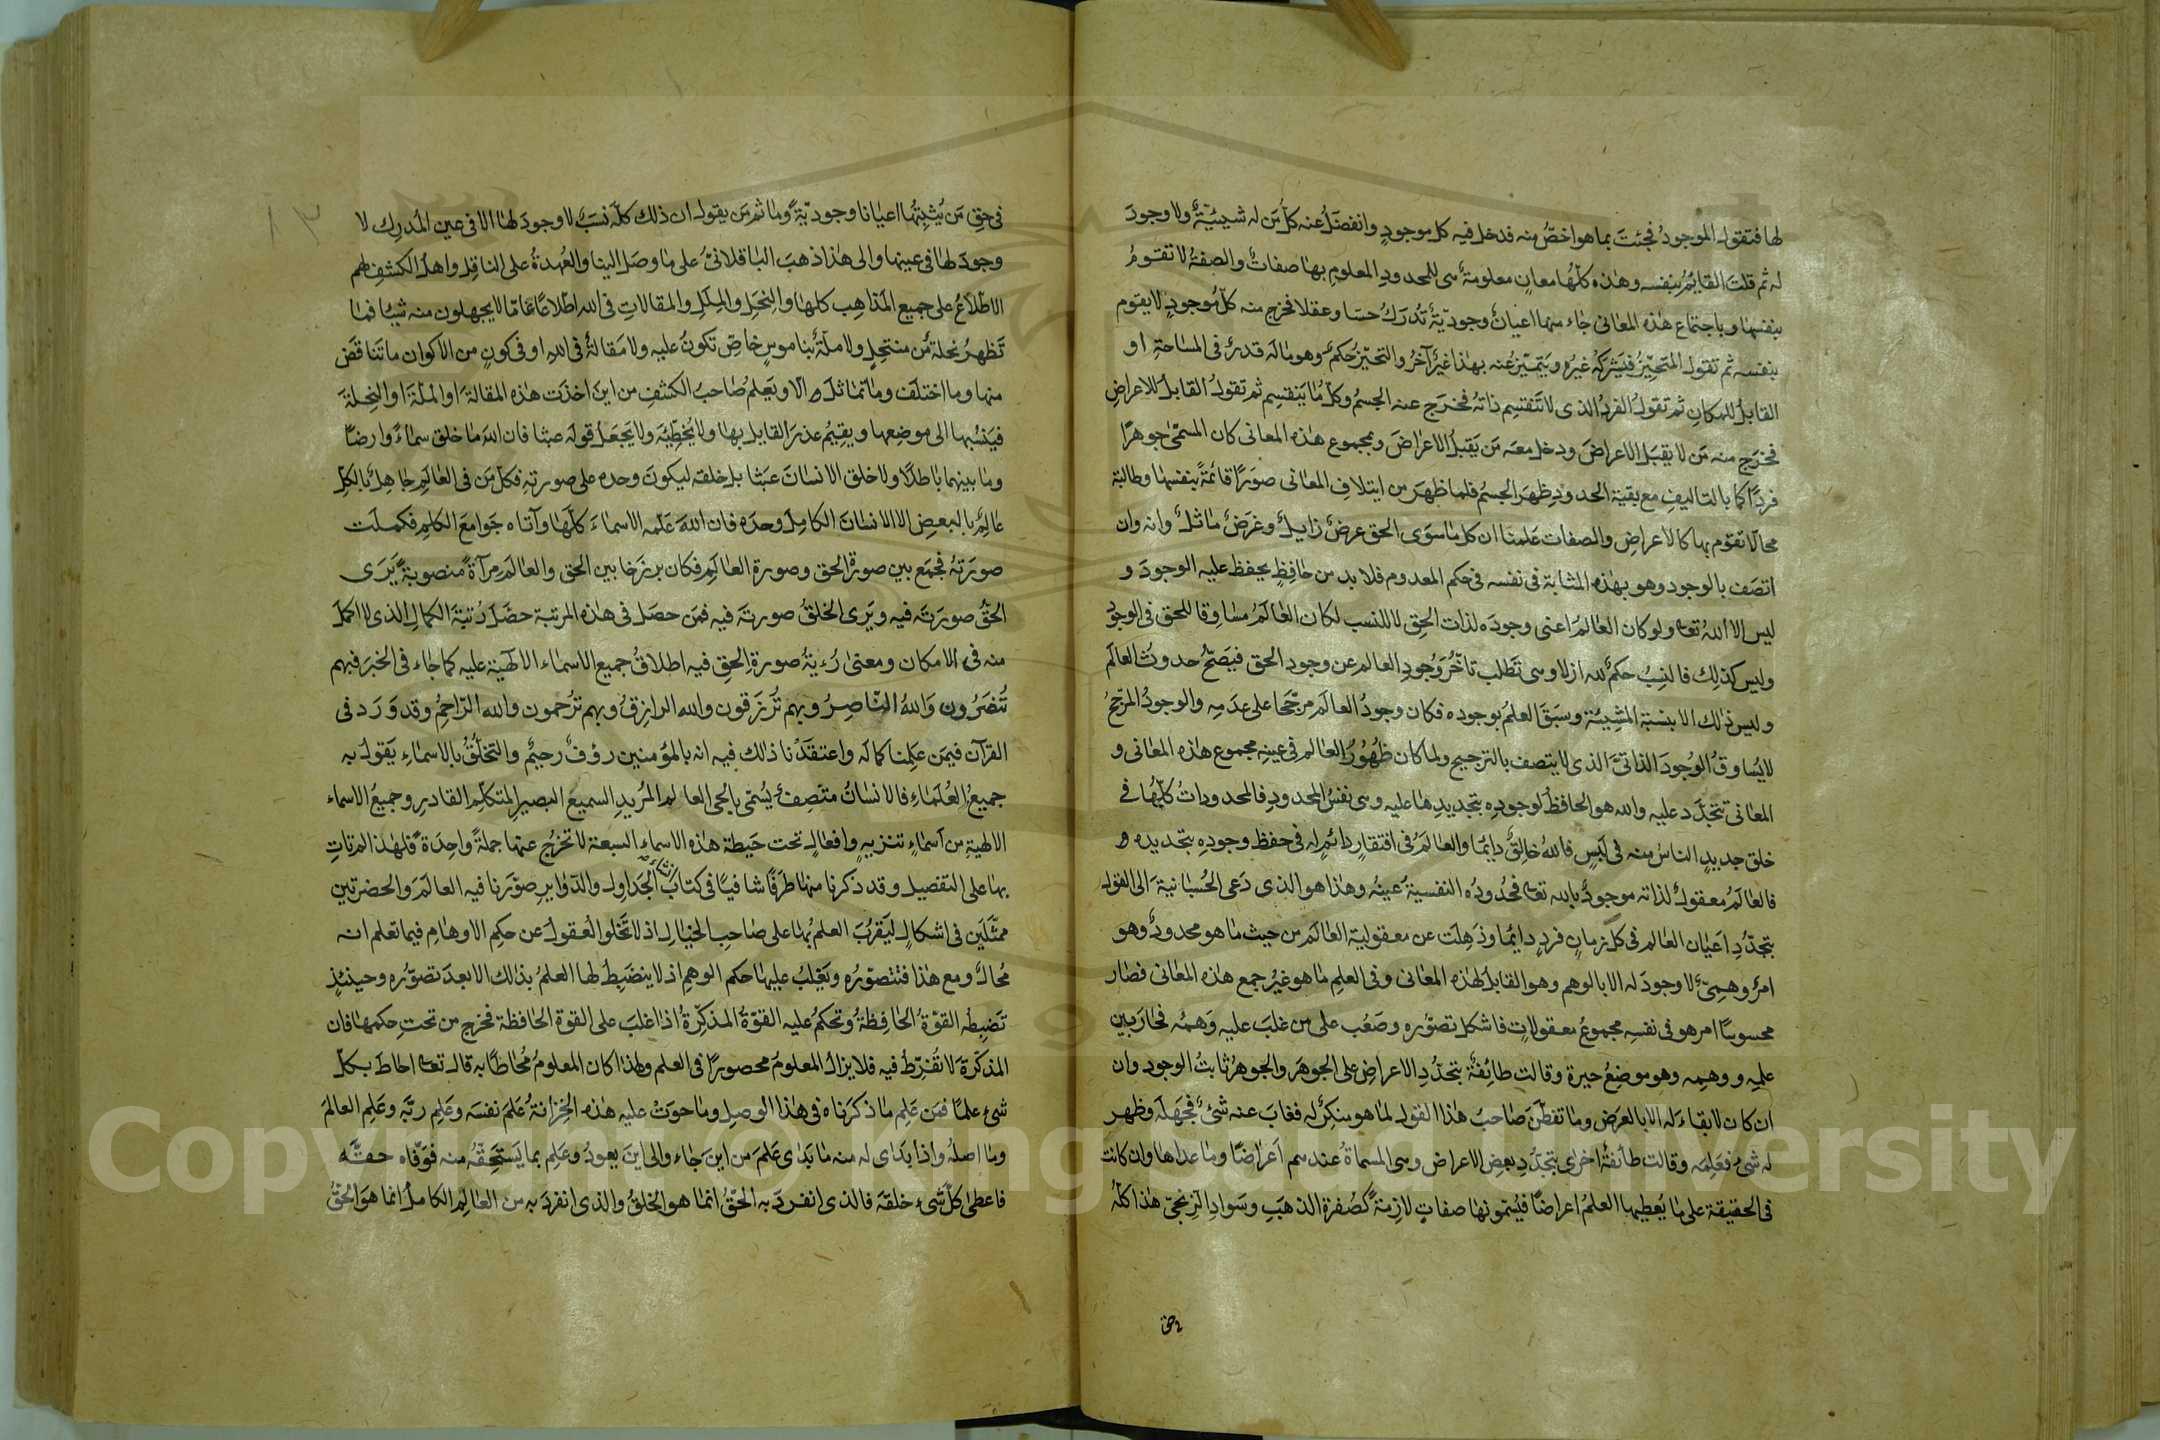 لها فتقول الموجودُ فجئتَ بما هو اخصُّ منه فدخل فيه كل موجودٍ وانفصَلُ عنه كلُّ مَن له شيئيّةٌ ولا وجودَ
له ثم قلتَ القايمُ بنفسه وهٰذه كلّها معانٍ معلومةٌ هى للمحدودِ المعلومِ بها صفاتٌ والصفةُ لا تقومُ
بنفسها وباجتماع هٰذه المعانى جاء منها اعيانٌ وجوديّةٌ تُدرَكُ حسّا وعقلا فخرج منه كلّ موجودٍ لا يقوم
بنفسه ثم تقول المتحيّزُ فيَشركهُ غيرُه ويَتميّزُ عنه بهٰذا غيرٌ آخرُ والتحيّز حكمٌ وهو ما له قدرٌ فى المسَاحةِ او
القابلُ للمكانِ ثم تقولُ الفردُ الذى لا تَنقسِم ذاتهُ فخرَج عنه الجسمُ وكلّ مَا يَنقسِم ثم تقولُ القابلُ للاعراضِ
فخرَج منه مَن لا يقبَل الاعراضَ ودخل معَه مَن يَقبلُ الاعراضَ وبمجموع هٰذه المعانى كان المسمّى جوهرًا
فردًا كما بالتاليفِ مع بقية الحدودِ ظهَر الجسمُ فلما ظهَر من ايتلافِ المعانى صوَرًا قائمةً بنفسها وطالبة
محالّا تقوم بها كالاعراضِ والصفات عَلمنا ان كل ما سوَى الحق عرضٌ زايلٌ وغرَضٌ مَاثلٌ وانه وان
اتصَف بالوجود وهو بهٰذه المثابة فى نفسه فى حكم المعدوم فلا بد من حَافِظٍ يحفظ عليه الوجودَ و
ليس الا اللهُ تعا ولو كان العَالمُ اعنى وجودَه لذات الحق لا للنسب لكان العَالمُ مسَاوقا للحق فى الوجودِ
وليس كذلِك فالنِسبُ حكمٌ لله ازلا وهى تَطلب تأخُّرَ وُجودِ العالم عن وجود الحق فيَصَحُّ حدوثُ العالمَ
وليس ذٰلك الا بنسبَة المشِيئة وسبَقَ العلمُ بوجوده فكان وجودُ العالَم مرجّحا على عدَمِه والوجودُ المرجّحُ
لا يُساوقُ الوُجودَ الذاتىَّ الذى لا يتصف بالترجيح ولما كان ظهُورُ العَالم فى عينه مجموع هٰذه المعانى و
المعَانى تتجدّد عليه والله هو الحَافظُ لوجودِه بتجديدِهَا عليه وهى نفسُ المحدودِ فالمحدوداتُ كلّها فى
خلق جديدٍ الناسُ منه فى لَبسٍ فاللهُ خالِقٌ دايمًا والعَالمُ فى افتقارٍ دائمٍ له فى حفظ وجودِه بتجديده
فالعالَم معقولٌ لذاته موجودٌ بالله تعا فحُدودُه النفسيةُ عينُه وهٰذا هو الذى دَعى الحُسبَانيةَ الى القول
بتجدُّدِ اعَيان العالم فى كل زمانٍ فردٍ دايمًا وذهِلَت عن معقولية العَالم من حيث ما هو محدودٌ وهو
امرٌ وهمِىٌّ لا وجودَ له الا بالوهم وهو القابلُ لهٰذه المعَانى وفى العلم مَا هو غيرُ جمع هٰذه المعَانى فصَار
محسوسًا امر هو فى نفسِه مجموعُ معقولاتٍ فاشكل تصوّره وصَعُب على من غلبَ عليه وَهمُه فحارَ بين
علمِه ووهمِه وهو موضِعُ حيرة وقالت طائِفةٌ بتجدّدِ الاعراضِ على الجوهَر والجوهرُ ثابتُ الوجودِ وان
ان كان لا بقاءَ له الا بالعرَض وما تفطّنَ صَاحبُ هٰذا القول لما هو منكِرٌ له فغابَ عنه شىٌ فجَهلَه وظهر
له شىٌ فعَلِمَه وقالت طائفةٌ اخرٰى بتجدّدِ بعض الاعراض وهى المسماةُ عندهم اَعراضًا وما عداها وان كانت
فى الحقيقة على مَا يُعطيها العلمُ اعراضًا فيُسمّونها صفاتٍ لازمةً كصُفرة الذهبِ وسَوادِ الزنجىّ هٰذا كلّه
فى حق
فى حقِ مَن يُثبِتُها اعيانا وجوديّةً وما ثم مَن يقول ان ذلك كلّه نسَبٌ لا وجودَ لها الا فى عين المُدرِك لا
وجودَ لها فى عينها والى هٰذا ذهبَ البَاقلانىُّ على مَا وصَل الينا والعُهدةُ على الناقلِ واهلُ الكشفِ لهم
الاطّلاعُ على جميع المَذاهِب كلها والنِحَلِ والمِلَلِ والمقالاتِ فى الله اطّلاعًا عَامّا لا يجهلون منه شيئا فما
تَظهرُ نحلة مِن منتحِلٍ ولا ملّةٌ بناموسٍ خاصٍّ تكونُ عليه ولا مَقالةٌ فى الله او فى كونٍ من الاكوانِ ما تَناقَض
منها وما اختلَف وما تماثلَ الا ويَعلمُ صَاحبُ الكشفِ من اينَ اخذَت هذه المقالةَ او الملّةَ او النِحلةَ
فيَنسُبها الى موضِعها ويقيمُ عذرَ القايل بها ولا يُخطّئه ولا يَجعَلُ قولَه عبثا فان اللهَ مَا خلق سماءً وارضًا
وما بينهما بَاطلًا ولا خلق الانسانَ عبَثا بل خلقه ليكونَ وحده على صورتهِ فكلّ مَن فى العَالَمِ جَاهلٌ بالكلِ
عَالِمٌ بالبَعضِ الا الانسَان الكامِلَ وحدَه فان اللهَ عَلّمه الاسمَاءَ كلّهَا وآتاه جَوامعَ الكلِم فكملَت
صورَتهُ فجمَع بين صورةِ الحق وصورة العالَمِ فكان برزَخا بين الحقِ والعالَمِ مِرآةً منصوبةً يَرَى
الحَقُّ صورَتَه فيه ويَرى الخلقُ صورتَه فيه فمَن حصَل فى هٰذه المرتبة حصَّلَ رُتبَةَ الكمالِ الذى لا اكمَلَ
منه فى الامكان ومعنٰى رُؤيةُ صورةِ الحقِ فيه اطلاقُ جميع الاسمَاءِ الآلٰهيّة عليه كما جَاء فى الخبَر فبهم
تُنصَرُون وَاللهُ النّاصِرُ وبهم تُرزَقون والله الرازقُ وبهم تُرحَمون والله الرّاحِمُ وقد وَرَد فى
القرآن فيمَن عَلِمنا كمالَه واعتقَدْنا ذٰلك فيه انه بالمؤمنين رؤفٌ رحيمٌ والتخلّقُ بالاسماءِ يَقولُ به
جميعُ العُلمَاءِ فالانسَانُ متّصِفٌ يُسَمّى بالحىِ العالِم المُريدِ السميع البَصيرِ المتكلِّمِ القادرِ وجميعُ الاسمَاء
الالٰهيةِ من اَسمَاءِ تنزيهٍ وافعَالٍ تحت حَيطة هٰذه الاسماءِ السبعة لا تخرُج عنها جملةً واحِدةً فلهٰذا لم نَاتِ
بها على التفصيل وقد ذكرنا منها طرَفًا شافيًا فى كتابِ انشاءِ الجَداولِ والدّوَايرِ صوَّرنا فيه العالَمَ والحضرتينِ
ممثّلَين فى اشكالٍ ليَقرُبَ العلمُ بهَا على صَاحبِ الخيَالِ اذ لا تخلو العُقولُ عن حكم الاوهَامِ فيما تعلم انه
مُحالٌ ومع هٰذا فتتصوّرُه ويَغلبُ عليها حكم الوهمِ اذ لا ينضَبِطُ لها العلمُ بذٰلك الا بعدَ تصوّره وحينئذٍ
تَضبِطه القوّةُ الحَافِظةُ وتَحكمُ عليه القوّةُ المذكِّرةُ اذا غلبَ على القوة الحافظة فخرج من تحتِ حكمها فان
المذكّرةَ لا تُفرّطُ فيه فلا يزالُ المعلومُ محصورًا فى العلم ولهٰذا كان المعلومُ مُحاطًا به قال تعا احاطَ بكلّ
شىءٍ علمًا فمَن عَلِم ما ذكرَناه فى هٰذا الوصلِ وما حوَتْ عليه هٰذه الخِزانةُ عَلمَ نفسَه وعَلِم ربَّه وعَلِم العالمَ
وما اصلُه واذا بدَاى له منه مَا بدَاى عَلمَ من اينَ جَاء والى اينَ يعودُ وعَلِم بما يَستحِقّه منه فوَفّاه حقَّه
فاعطى كلَّ شىءٍ خلقَه فالذى انفردَ به الحَقُّ انمَا هو الخلقُ والذى انفردَ به من العَالمِ الكاملُ انما هوَ الحَقُّ
Copyright © King Saud University